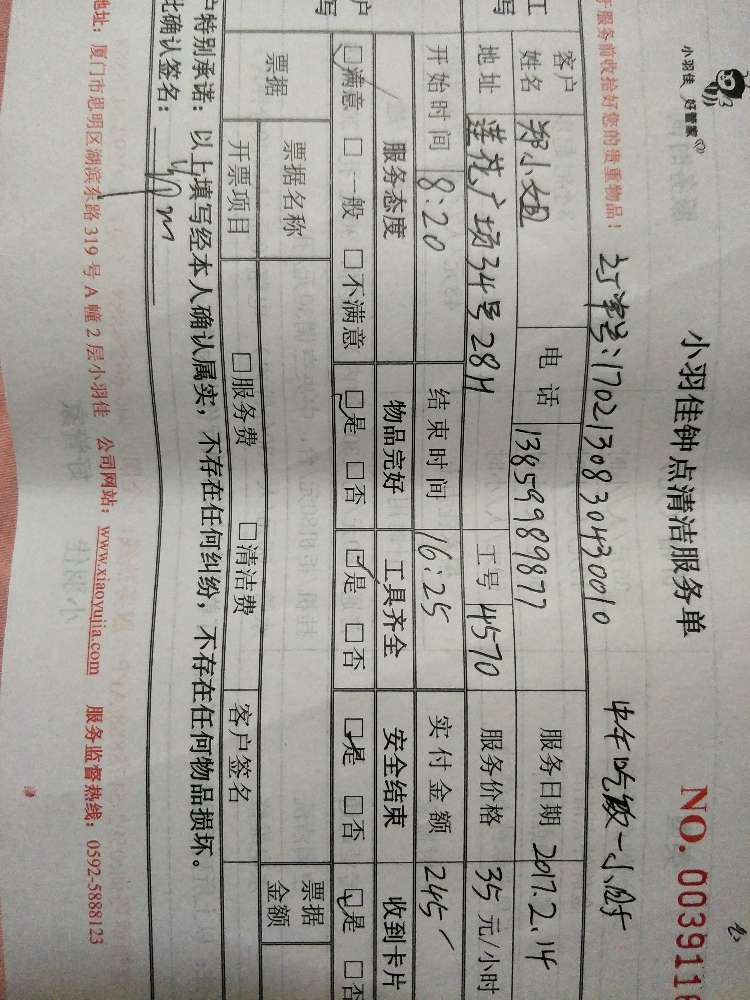 小羽佳 好管家
小羽佳钟点清洁服务单
NO. 0039116
于服务前收拾好您的贵重物品！
订单号：17021308304300010
中午吃饭一小时
工
写
客户姓名 郑小姐 电话 13859989877 服务日期 2017.2.14
地址 莲花广场34号28H 工号 4570 服务价格 35元/小时
开始时间 8:20 结束时间 16:25 实付金额 245
户
写
服务态度 物品完好 工具齐全 安全结束 收到卡片
□满意 □一般 □不满意 □是 □否 □是 □否 □是 □否 □是 □否
票据 票据名称 票据金额
开票项目 □服务费 □清洁费 客户签名
户特别承诺：以上填写经本人确认属实，不存在任何纠纷，不存在任何物品损坏。
此确认签名：
地址：厦门市思明区湖滨东路319号A幢2层小羽佳 公司网站：www.xiaoyujia.com 服务监督热线：0592-5888123